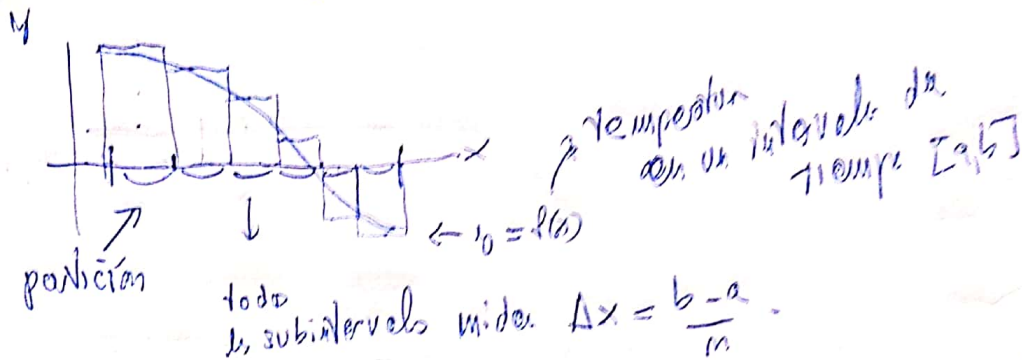 y
x
temperatura
en un intervalo de
tiempo [a,b]
← y = f(x)
partición
todo
los subintervalos miden Δx = b - a / n .